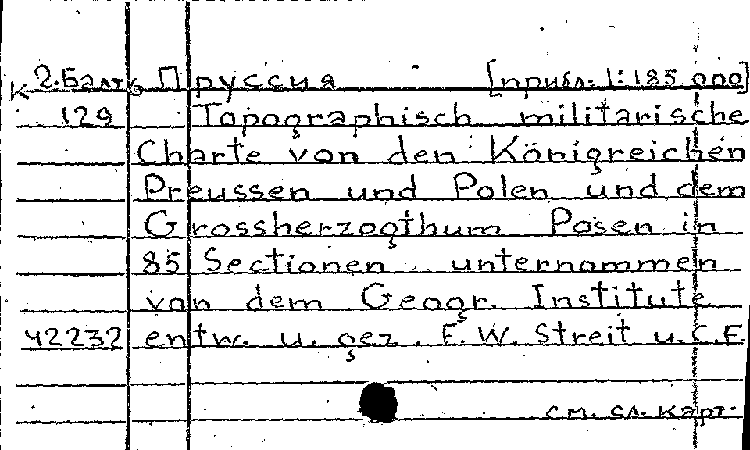 К 2.Балт. Пруссия [прибл. 1:185 000]
129 Topographisch militarische
Charte von den Königreichen
Preussen und Polen und dem
Grossherzogthum Posen in
85 Sectionen unternommen
von dem Geogr. Institute
42232 entw. u. gez. F. W. Streit u. C.F.
см. сл. карт.